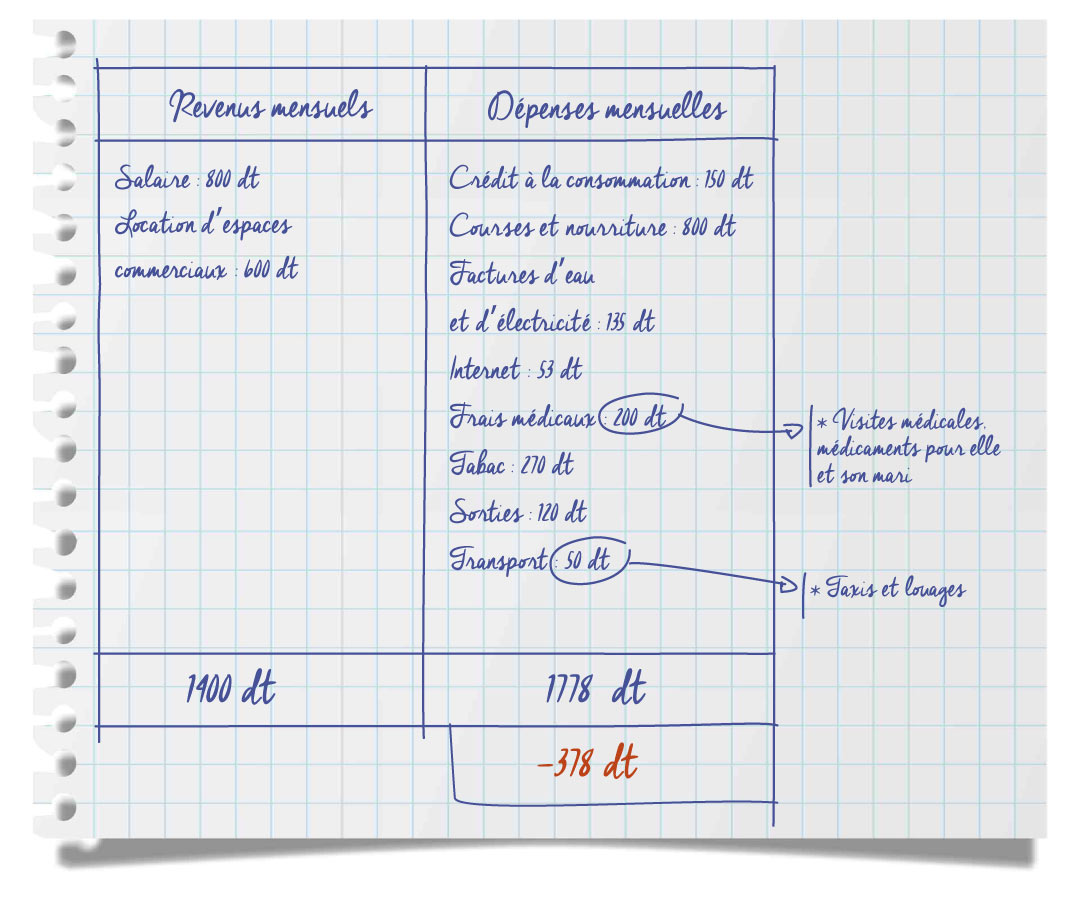 Revenus mensuels
Dépenses mensuelles
Salaire : 800 dt
Location d'espaces
commerciaux : 600 dt
Crédit à la consommation : 150 dt
Courses et nourriture : 800 dt
Factures d'eau
et d'électricité : 135 dt
Internet : 53 dt
Frais médicaux : 200 dt
Tabac : 270 dt
Sorties : 120 dt
Transport : 50 dt
* Visites médicales,
médicaments pour elle
et son mari
* Taxis et louages
1400 dt
1778 dt
-378 dt